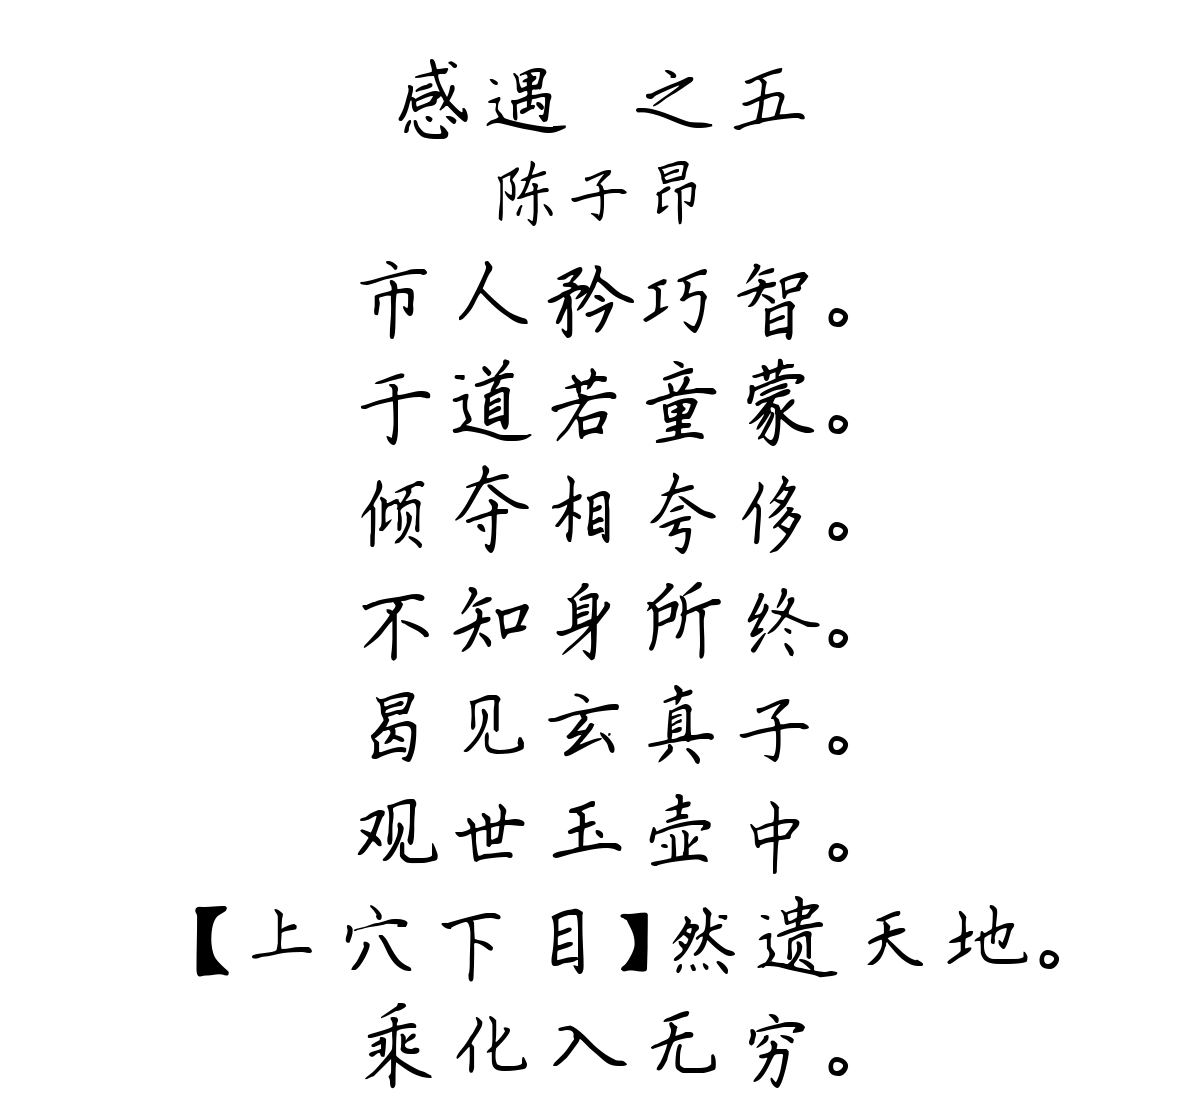 感遇 之五
陈子昂
市人矜巧智。
于道若童蒙。
倾夺相夸侈。
不知身所终。
曷见玄真子。
观世玉壶中。
【上穴下目】然遗天地。
乘化入无穷。